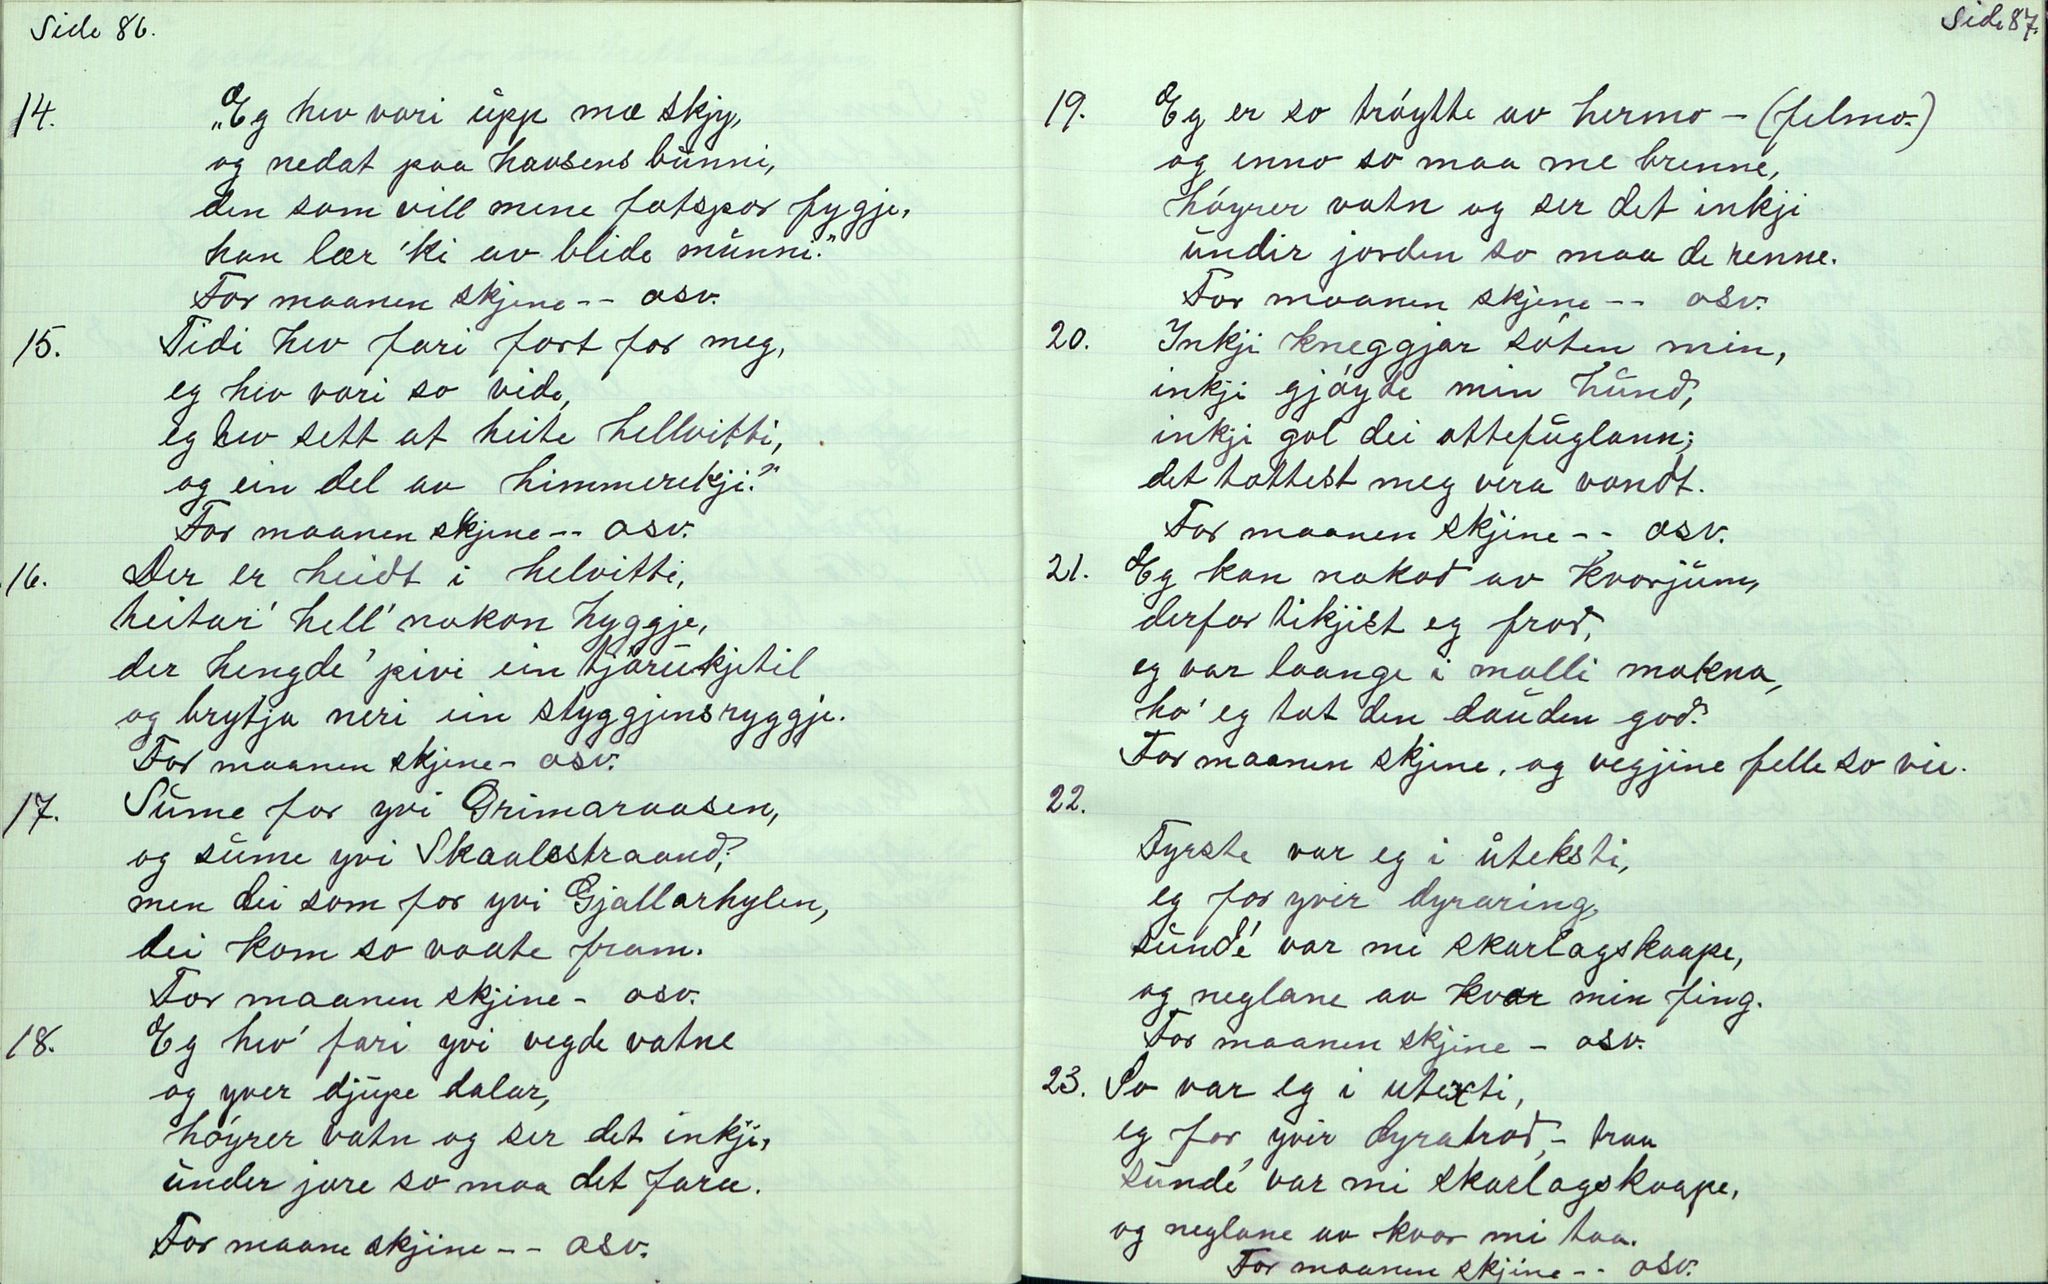 Side 86.
14. „Eg hev vori upp mæ skjy,
og nedat paa havsens bunni,
den som vill mene fotspor fygje,
han lær 'ki av blide munni."
For maanen skjene -- osv.
15. Tidi hev fari fort for meg,
eg hev vori so vide,
eg hev sett at heite hellvitti,
og ein del av himmerikji."
For maanen skjine -- osv.
16. Der er heidt i helvitti,
heitar' hell' nokon hyggje,
der hengde 'pivi ein tjørukjetil
og brytja neri ein styggjens ryggje.
For maanen skjene - osv.
17. Sume for yvi Grimaraasen,
og sume yvi Skaalestraand;
men dei som for yvi Gjallarhylen,
dei kom so vaate fram.
For maanen skjine - osv.
18. Eg hev' fari yvi vegde vatne
og yver djupe dalar,
höyrer vatn og ser det inkji,
under jore so maa det fara.
For maane skjine -- osv.
Side 87.
19. Eg er so tröytte av hermo - (felmo.)
og enno so maa me brenne,
höyrer vatn og ser det inkji
undir jorden so maa de renne.
For maanen skjene -- osv.
20. Inkji kneggjar soten min,
inkji gjöyde min hund,
inkji gol dei ottefuglann;
det tottest meg vera vondt.
For maanen skjine -- osv.
21. Eg kan nokod av kvorjum,
derfor tikjist eg frod,
eg var laange i molli mokna,
ho' eg tot den dauden god.
For maanen skjene, og vegjine felle so vie.
22.
Fyrste var eg i uteksti,
eg for yvir dyraring,
sunde' var me skarlagskaape,
og neglane av kvar min fing.
For maanen skjine - osv.
23. So var eg i utexti,
eg for yvir dyratrod, - traa
sunde' var mi skarlagskaape,
og neglane av kvor mi taa.
For maanen skjine -- osv.